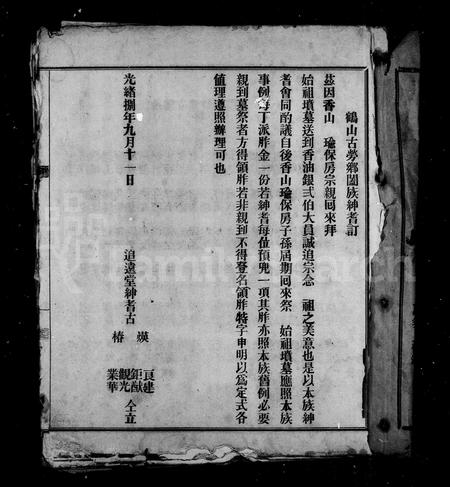 鶴山古勞鄉闔族紳耆訂
茲因香山 瑜保房宗親囘來拜
始祖墳墓送到香油銀弍伯大員誠追宗念 祖之美意也是以本族紳
耆會同酌議自後香山瑜保房子孫屆期囘來祭 始祖墳墓應照本族
事例每丁派胙金一份若紳耆每位預兜一項其胙亦照本族舊例必要
親到墓祭者方得領胙若非親到不得登名領胙特字申明以為定式各
值理遵照辦理可也
光緒捌年九月十一日 追遠堂紳耆古
煐 亘建
鉅猷
椿 觀光 仝立
業華
FamilySearch